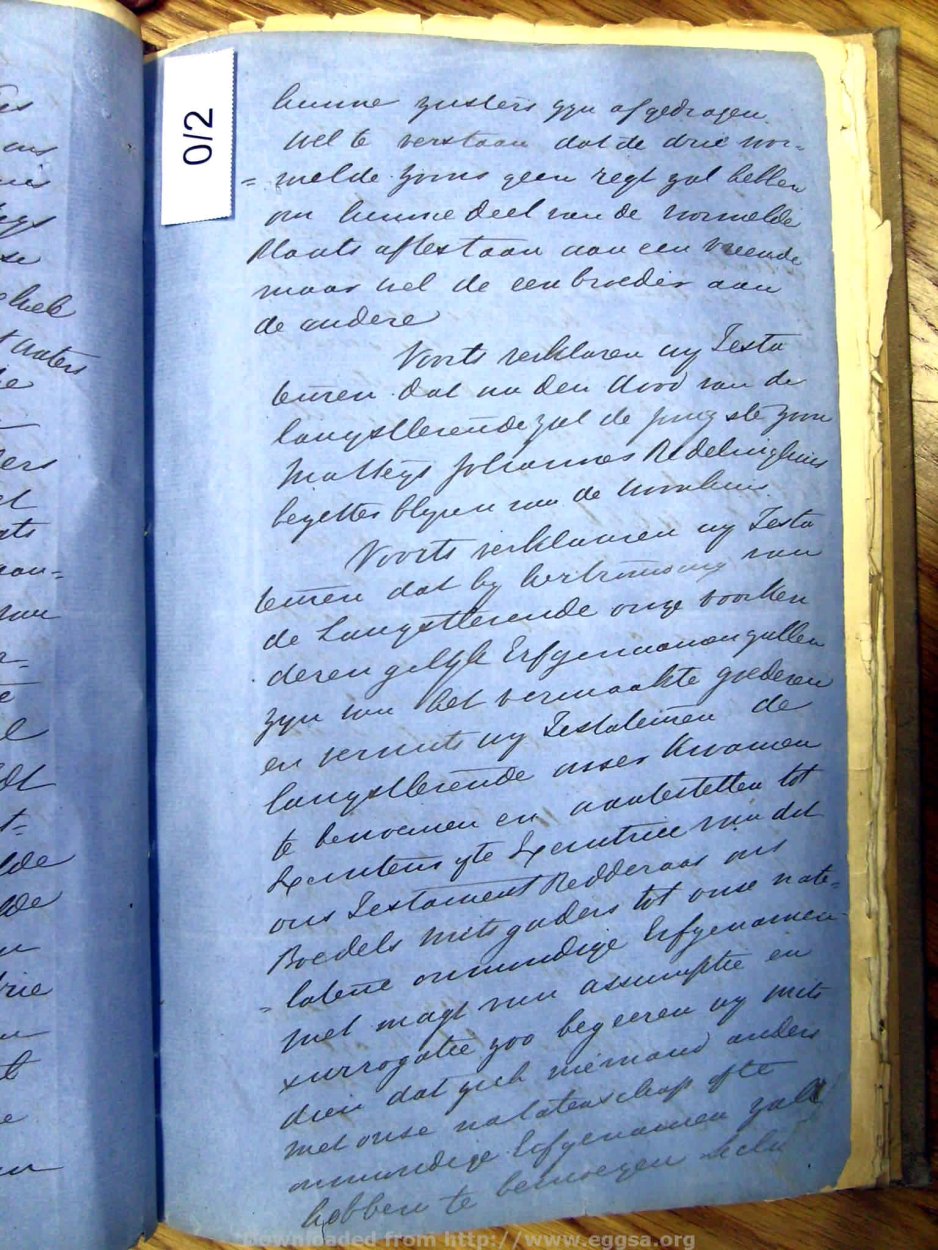 0/2
hunne zusters zyn afgedragen
wel te verstaan dat de drie vor=
=melde zoons geen regt zal hebben
om hunne deel van de vormelde
Plaats aftestaan aan een vreemde
maar wel de een broeder aan
de andere
Voorts verklaren wy Testa
teuren dat na den dood van de
langstlevende zal de jongste zoon
Mattheys Johannes Redelinghuis
bezetter blyven van de woonhuis
Voorts verklaaren wy Testa
teuren dat by hertrouwing van
de Langstlevende onze voorken
deren gelyk Erfgenaamen zullen
zyn van het vermaakte goederen
en vermits wy Testateuren de
langstlevende onser kwamen
te benoemen en aantestellen tot
Executeur ofte Executrice van dit
ons Testament Redderaar ons
Boedels mitsgaders tot onse nate=
=latene onmundige Erfgenamen
met magt van assumptie en
surrogatie zoo begeeren wy mits
dien dat zich niemand anders
met onse nalatenschap ofte
onmundige Erfgenamen zal
hebben te bemoeyen
Downloaded from http://www.eggsa.org